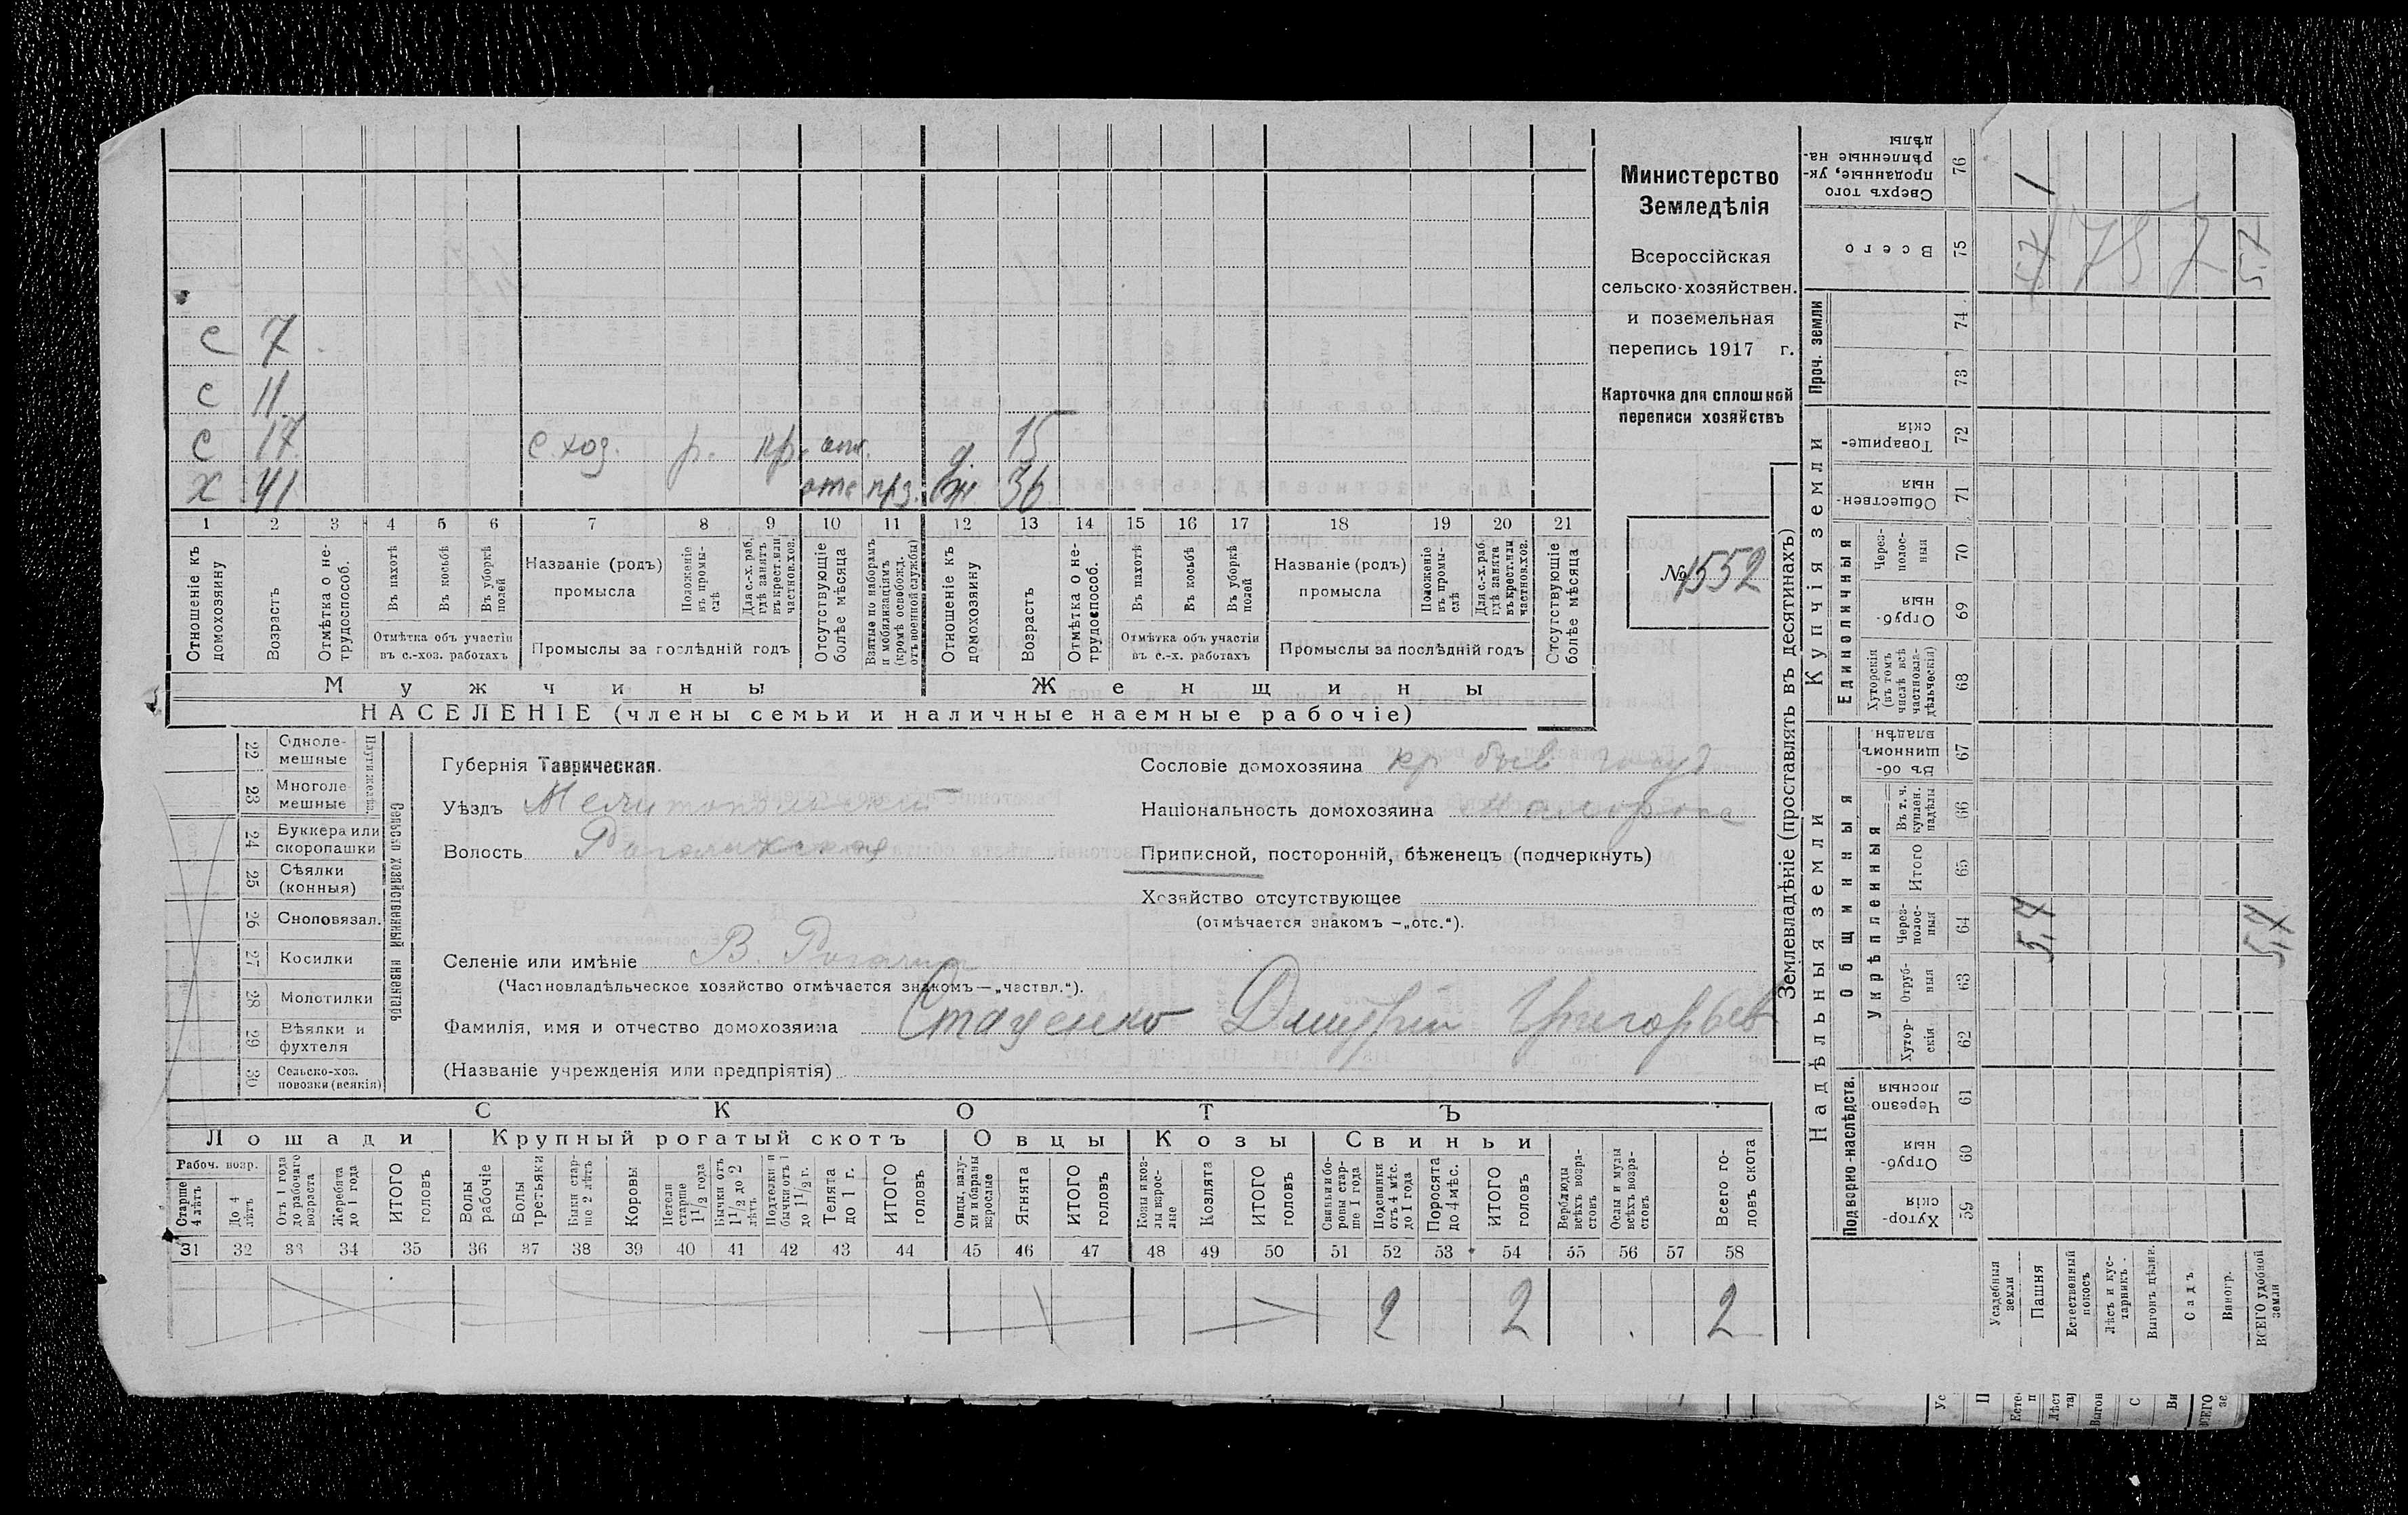 с 7
с 11
с 17 с.хоз. р. кр. отс. д 15
х 41 отс прз. ж. 36
1 2 3 4 5 6 7 8 9 10 11 12 13 14 15 16 17 18 19 20 21
Отношеніе къ домохозяину
Возрастъ
Отмѣтка о не-трудоспособ.
Въ пахотѣ
Въ косьбѣ
Въ уборкѣ полей
Отмѣтка объ участіи въ с.-хоз. работахъ
Названіе (родъ) промысла
Положеніе въ промы-слѣ
Для с.-х. раб, гдѣ занятъ въ крест.или частновл.хоз.
Промыслы за послѣдній годъ
Отсутствующіе болѣе мѣсяца
Взятые по наборамъ и мобилизаціямъ (кромѣ освобожд. отъ военной службы)
Отношеніе къ домохозяину
Возрастъ
Отмѣтка о не-трудоспособ.
Въ пахотѣ
Въ косьбѣ
Въ уборкѣ полей
Отмѣтка объ участіи въ с.-х. работахъ
Названіе (родъ) промысла
Положеніе въ промы-слѣ
Для с.-х. раб. гдѣ занята въ крест.или частнов.хоз.
Промыслы за послѣдній годъ
Отсутствующіе болѣе мѣсяца
Мужчины Женщины
НАСЕЛЕНІЕ (члены семьи и наличные наемные рабочіе)
Министерство
Земледѣлія
Всероссійская
сельско-хозяйствен.
и поземельная
перепись 1917 г.
Карточка для сплошной
переписи хозяйствъ
№ 1552
Сельско хозяйственный инвентарь
Плуги желѣз.
22 Одноле-мешные
23 Многоле мешные
24 Буккера или скоропашки
25 Сѣялки (конныя)
26 Сноповязал.
27 Косилки
28 Молотилки
29 Вѣялки и фухтеля
30 Сельско-хоз. повозки (всякія)
Губернія Таврическая.
Уѣздъ Мелитопольский
Волость Рогачикская
Селеніе или имѣніе В. Рогачик
(Частновладѣльческое хозяйство отмѣчается знакомъ—„частвл.“).
Фамилія, имя и отчество домохозяина Стаценко Дмитрій Григорьев
(Названіе учрежденія или предпріятія)
Сословіе домохозяина кр быв госуд
Національность домохозяина малоросс
Приписной, посторонній, бѣженецъ (подчеркнуть)
Хозяйство отсутствующее
(отмѣчается знакомъ —„отс.“).
СКОТЪ
Лошади Крупный рогатый скотъ Овцы Козы Свиньи
Рабоч. возр.
Старше 4 лѣтъ
До 4 лѣтъ
Отъ 1 года до рабочаго возраста
Жеребята до 1 года
ИТОГО головъ
Волы рабочіе
Волы третьяки
Быки стар-ше 2 лѣтъ
Коровы
Нетели старше 1 1/2 года
Бычки отъ 1 1/2 до 2 лѣтъ
Подтелки и бычки отъ 1 до 1 1/2 г.
Телята до 1 г.
ИТОГО головъ
Овцы, валу-хи и бараны взрослые
Ягнята
ИТОГО головъ
Козы и коз-лы взрос-лые
Козлята
ИТОГО головъ
Свиньи и бо-ровы стар-ше 1 года
Подсвинки отъ 4 мѣс. до 1 года
Поросята до 4 мѣс.
ИТОГО головъ
Верблюды всѣхъ возра-стовъ
Ослы и мулы всѣхъ возра-стовъ
Всего го-ловъ скота
31 32 33 34 35 36 37 38 39 40 41 42 43 44 45 46 47 48 49 50 51 52 53 54 55 56 57 58
2 2 2
Землевладѣніе (проставлять въ десятинахъ)
Надѣльныя земли Купчія земли Проч. земли
Подворно-наслѣдств. Общинныя Единоличныя
Укрѣпленныя
Сверхъ того проданные, ук-рѣпленные на-дѣлы 76
Всего 75 5,7 787 5,7
74
73
Товарище-скія 72
Обществен-ныя 71
Через-полос-ныя 70
Отруб-ныя 69
Хуторскія (въ томъ числѣ всѣ частновла-дѣльческія) 68
Въ об-щинномъ владѣн. 67
Въ т. ч. куплен. надѣлы 66
Итого 65
Через-полос-ныя 64 5,7 5,7
Отруб-ныя 63
Хутор-скія 62
Черезпо лосныя 61
Отруб-ныя 60
Хутор-скія 59
Усадебныя земли
Пашня
Естественный покосъ
Лѣсъ и кус-тарникъ.
Выгонъ цѣлин.
Садъ
Виногр.
ВСЕГО удобной земли